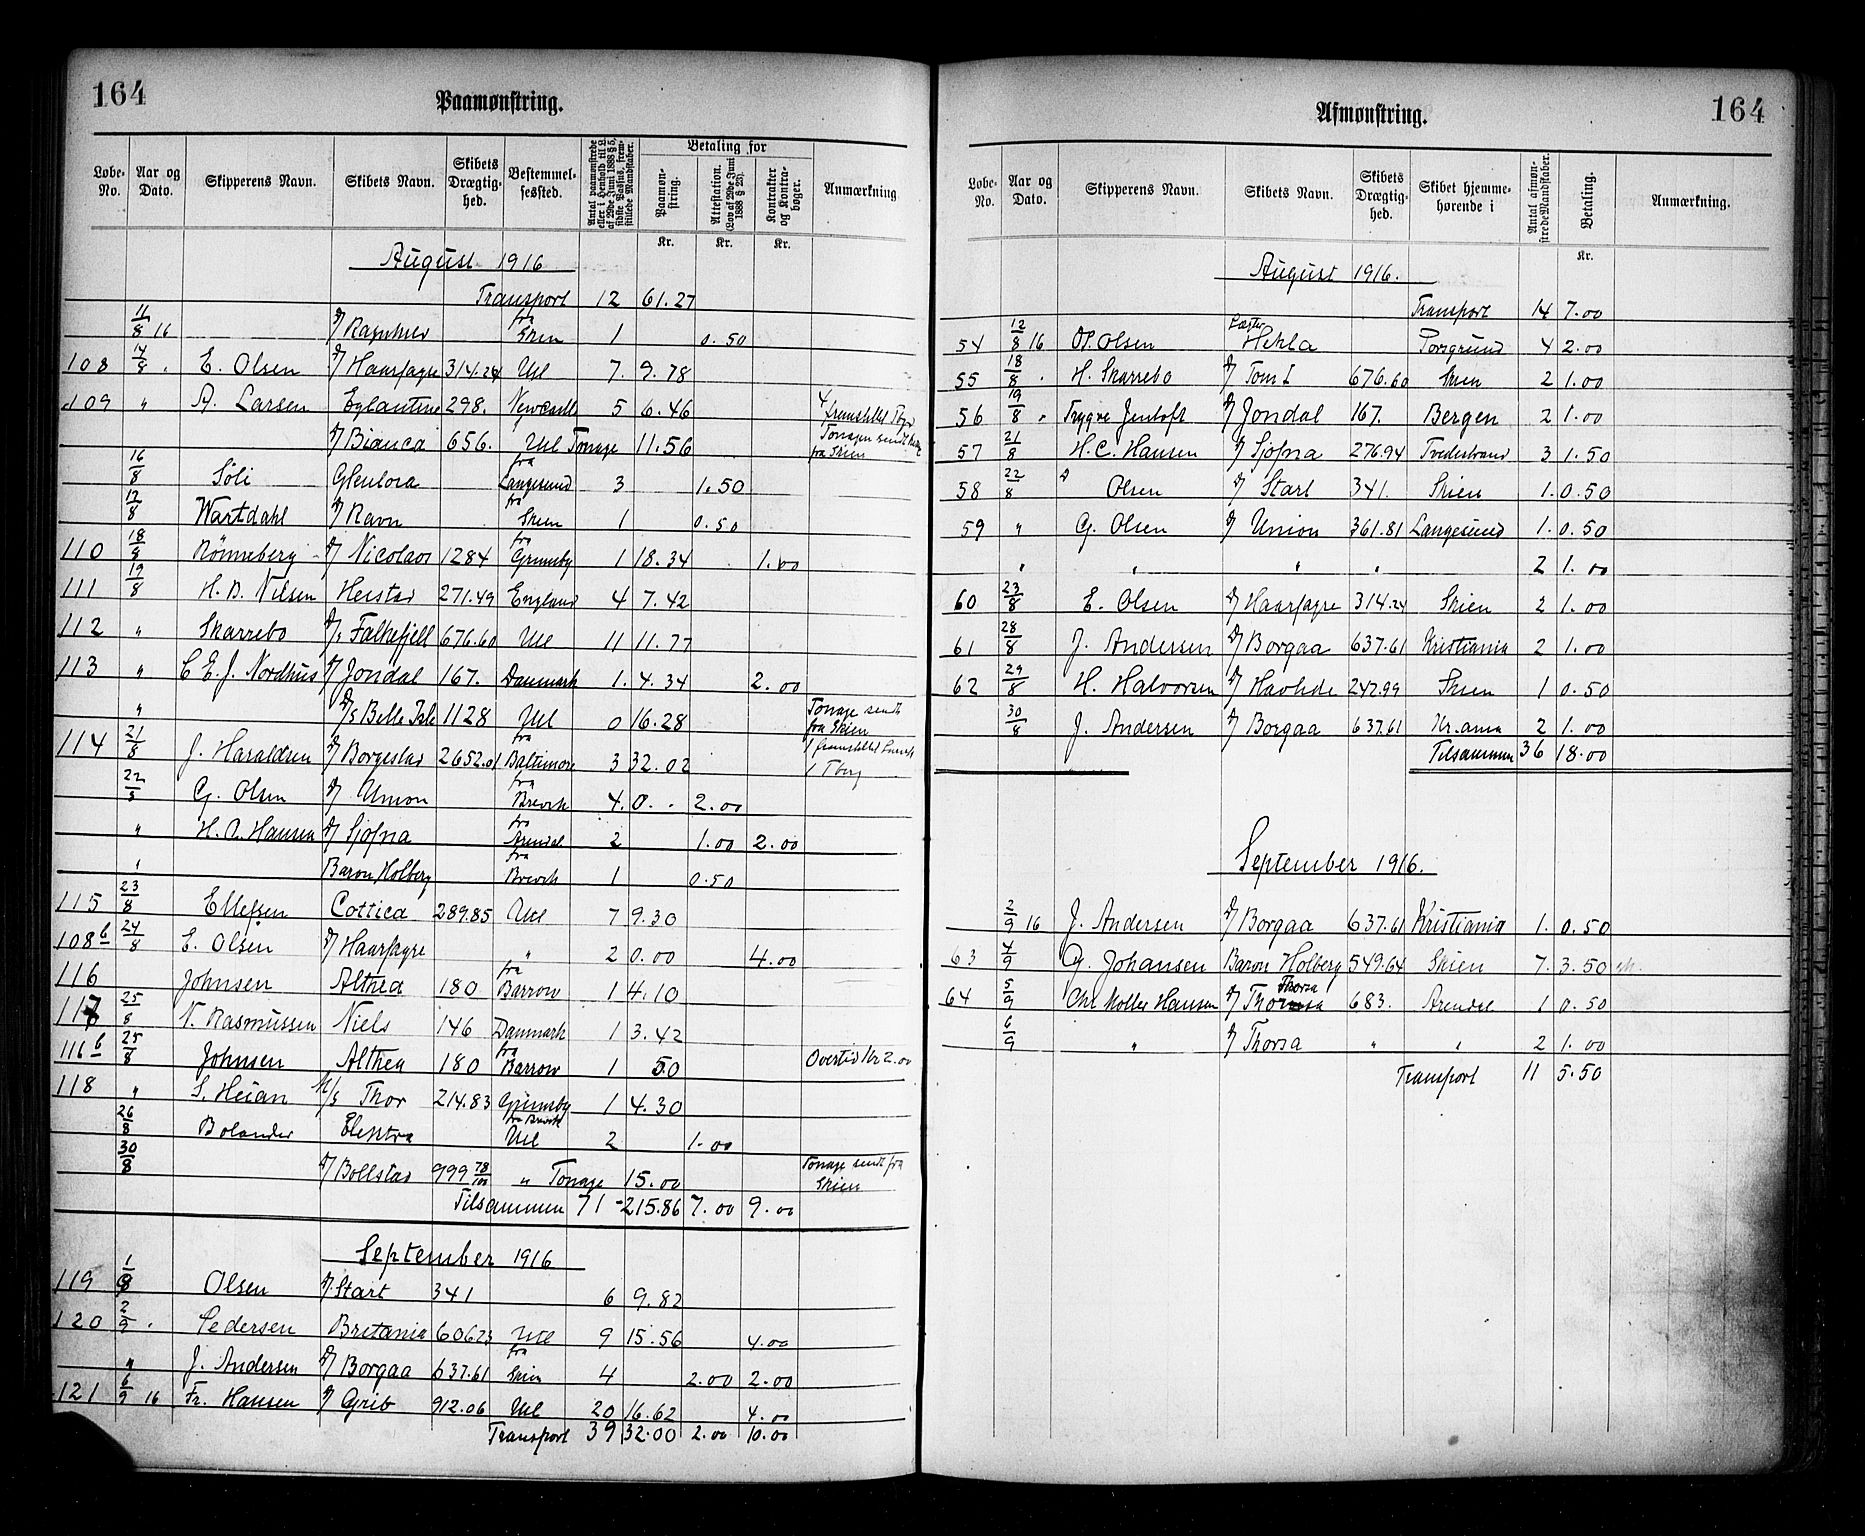 164
Paamønstring.
Løbe-No. | Aar og Dato. | Skipperens Navn. | Skibets Navn. | Skibets Drægtig-hed. | Bestemmel-sessted. | Antal paamønstrede eller i Henhold til L. af 29de Juni 1888 § 5, sidste Passus, frem-stillede Mandskaber. | Betaling for | Paamøn-string. Kr. | Attestation. (Lov af 29de Juni 1888 § 23). Kr. | Kontrakter og Kontra-bøger. Kr. | Anmærkning
August 1916
Transport 12 61.27
11/8 16 Ragnhild fra Skien 1 0.50
108 14/8 E. Olsen Haarfagre 314.24 Utl 7. 9.78
109 " A. Larsen Eglantine 298. Newcastle 5 6.46 4 fremstillet
Bianca 656. Utl Tonage 11.56 Tonagen sendt fra Skien
16/8 Søli Glenlora fra Langesund 3 1.50
17/8 Wartdahl Ravn fra Skien 1 0.50
110 18/8 Rønneberg Nicolaos 1284 fra Grimsby 1 18.34 1.00
111 19/8 H. B. Nilsen Heistad 271.49 England 4 7.42
112 " Skarrebo Falkefjell 676.60 Utl 11 11.77
113 " C E. J. Nordhus Jondal 167. Danmark 1. 4.34 2.00
" Belle Isle 1128 Utl 0 16.28 Tonage sendt fra Skien
114 21/8 J. Haraldsen Borgestad 2652.01 fra Baltimore 3 32.02 1 fremstillet
22/8 G. Olsen Union fra Brevik 4. 0. 2.00
" H. C. Hansen Sjofna fra Arendal 2 1.00 2.00
" Baron Holberg fra Brevik 1 0.50
115 23/8 Ellefsen Cottica 289.85 Utl 7 9.30
108 b 24/8 E. Olsen Haarfagre " 2 0.00 4.00
116 Johnsen Althea 180 fra Barrow 1 4.10
117 25/8 N. Rasmussen Niels 146 Danmark 1 3.42
116 b 25/8 Johnsen Althea 180 fra Barrow 1 50 Overtid Kr 2.00
118 " S. Heian M/s Thor 214.83 Grimsby 1 4.30
26/8 Bolander Elektra fra Brevik Utl 2 1.00
30/8 Bollstad 999 78/100 " Tonage 15.00 Tonage sendt fra Skien
Tilsammen 71 215.86 7.00 9.00
September 1916
119 1/9 Olsen Start 341 6 9.82
120 2/9 Pedersen Britania 606.23 Utl 9 15.56 4.00
" J. Andersen Borgaa 637.61 fra Skien 4 2.00 2.00
121 6/9 16 Fr. Hansen Grib 912.06 Utl 20 16.62 4.00
Transport 39 32.00 2.00 10.00
164
Afmønstring.
Løbe-No. | Aar og Dato. | Skipperens Navn. | Skibets Navn. | Skibets Drægtig-hed. | Skibet hjemme-hørende i | Antal afmøn-strede Mandskaber. | Betaling. Kr. | Anmærkning.
August 1916.
Transport 14 7.00
54 12/8 16 Ol. Olsen Lægter Hekla Porsgrund 4 2.00
55 18/8 H. Skarrebo Tom I 676.60 Skien 2 1.00
56 19/8 " Trygve Jentoft Jondal 167. Bergen 2 1.00
57 21/8 H. C. Hansen Sjofna 276.94 Tvedestrand 3 1.50
58 22/8 Olsen Start 341. Skien 1. 0.50
59 " G. Olsen Union 361.81 Langesund 1. 0.50
" " " " 2 1.00
60 23/8 E. Olsen Haarfagre 314.24 Skien 2 1.00
61 28/8 J. Andersen Borgaa 637.61 Kristiania 2 1.00
62 29/8 H. Halvorsen Havhde 242.99 Skien 1 0.50
30/8 J. Andersen Borgaa 637.61 Kr.ania 2 1.00
Tilsammen 36 18.00
September 1916.
2/9 16 J. Andersen Borgaa 637.61 Kristiania 1. 0.50
63 4/9 G. Johansen Baron Holberg 549.64 Skien 7. 3.50
64 5/9 Chr Møller Hansen Thorsa 683. Arendal 1 0.50
6/9 " Thorsa " " 2 1.00
Transport 11 5.50